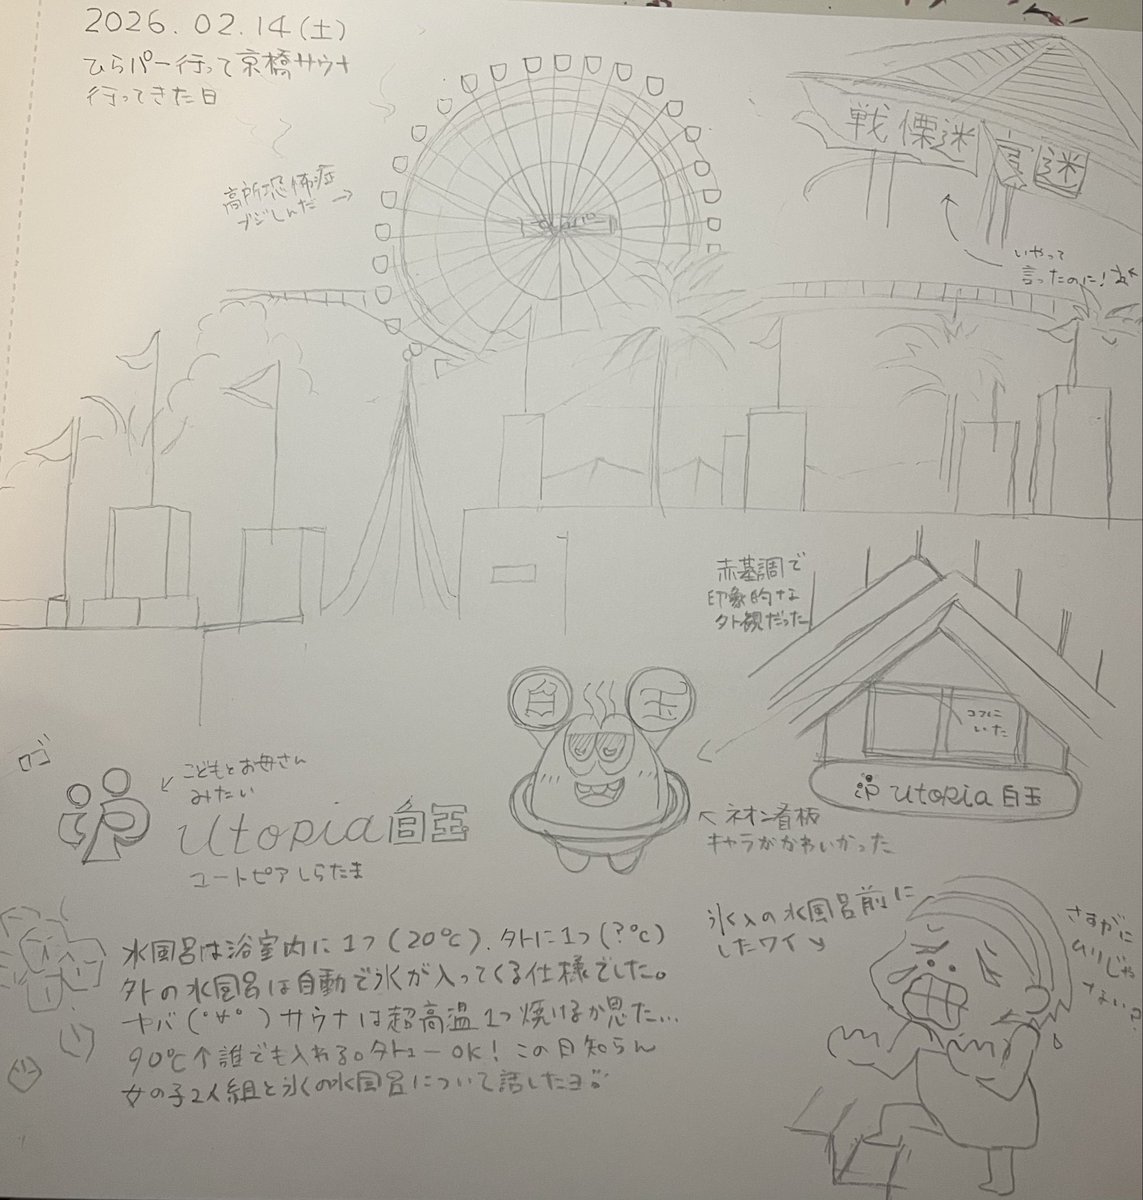 2026.02.14(土)
ひらパー行って京橋サウナ
行ってきた日
高所恐怖症
ブジしんだ →
戦慄迷宮 迷
いやって
言ったのに!
赤基調で
印象的な
外観だった
コフに
いた
utopia 白玉
白 玉
ロゴ
こどもとお母さん
みたい
utopia 白玉
ユートピアしらたま
ネオン看板
キャラがかわいかった
水風呂は浴室内に1つ(20℃).外に1つ(?℃)
外の水風呂は自動で氷が入ってくる仕様でした。
ヤバ(°∀°)サウナは超高温1つ焼けるか思た...
90℃↑誰でも入れる。タトューOK!この日知らん
女の子2人組と氷の水風呂について話したヨ
氷入の水風呂前に
したワイ
さすがに
ムリじゃ
ない?